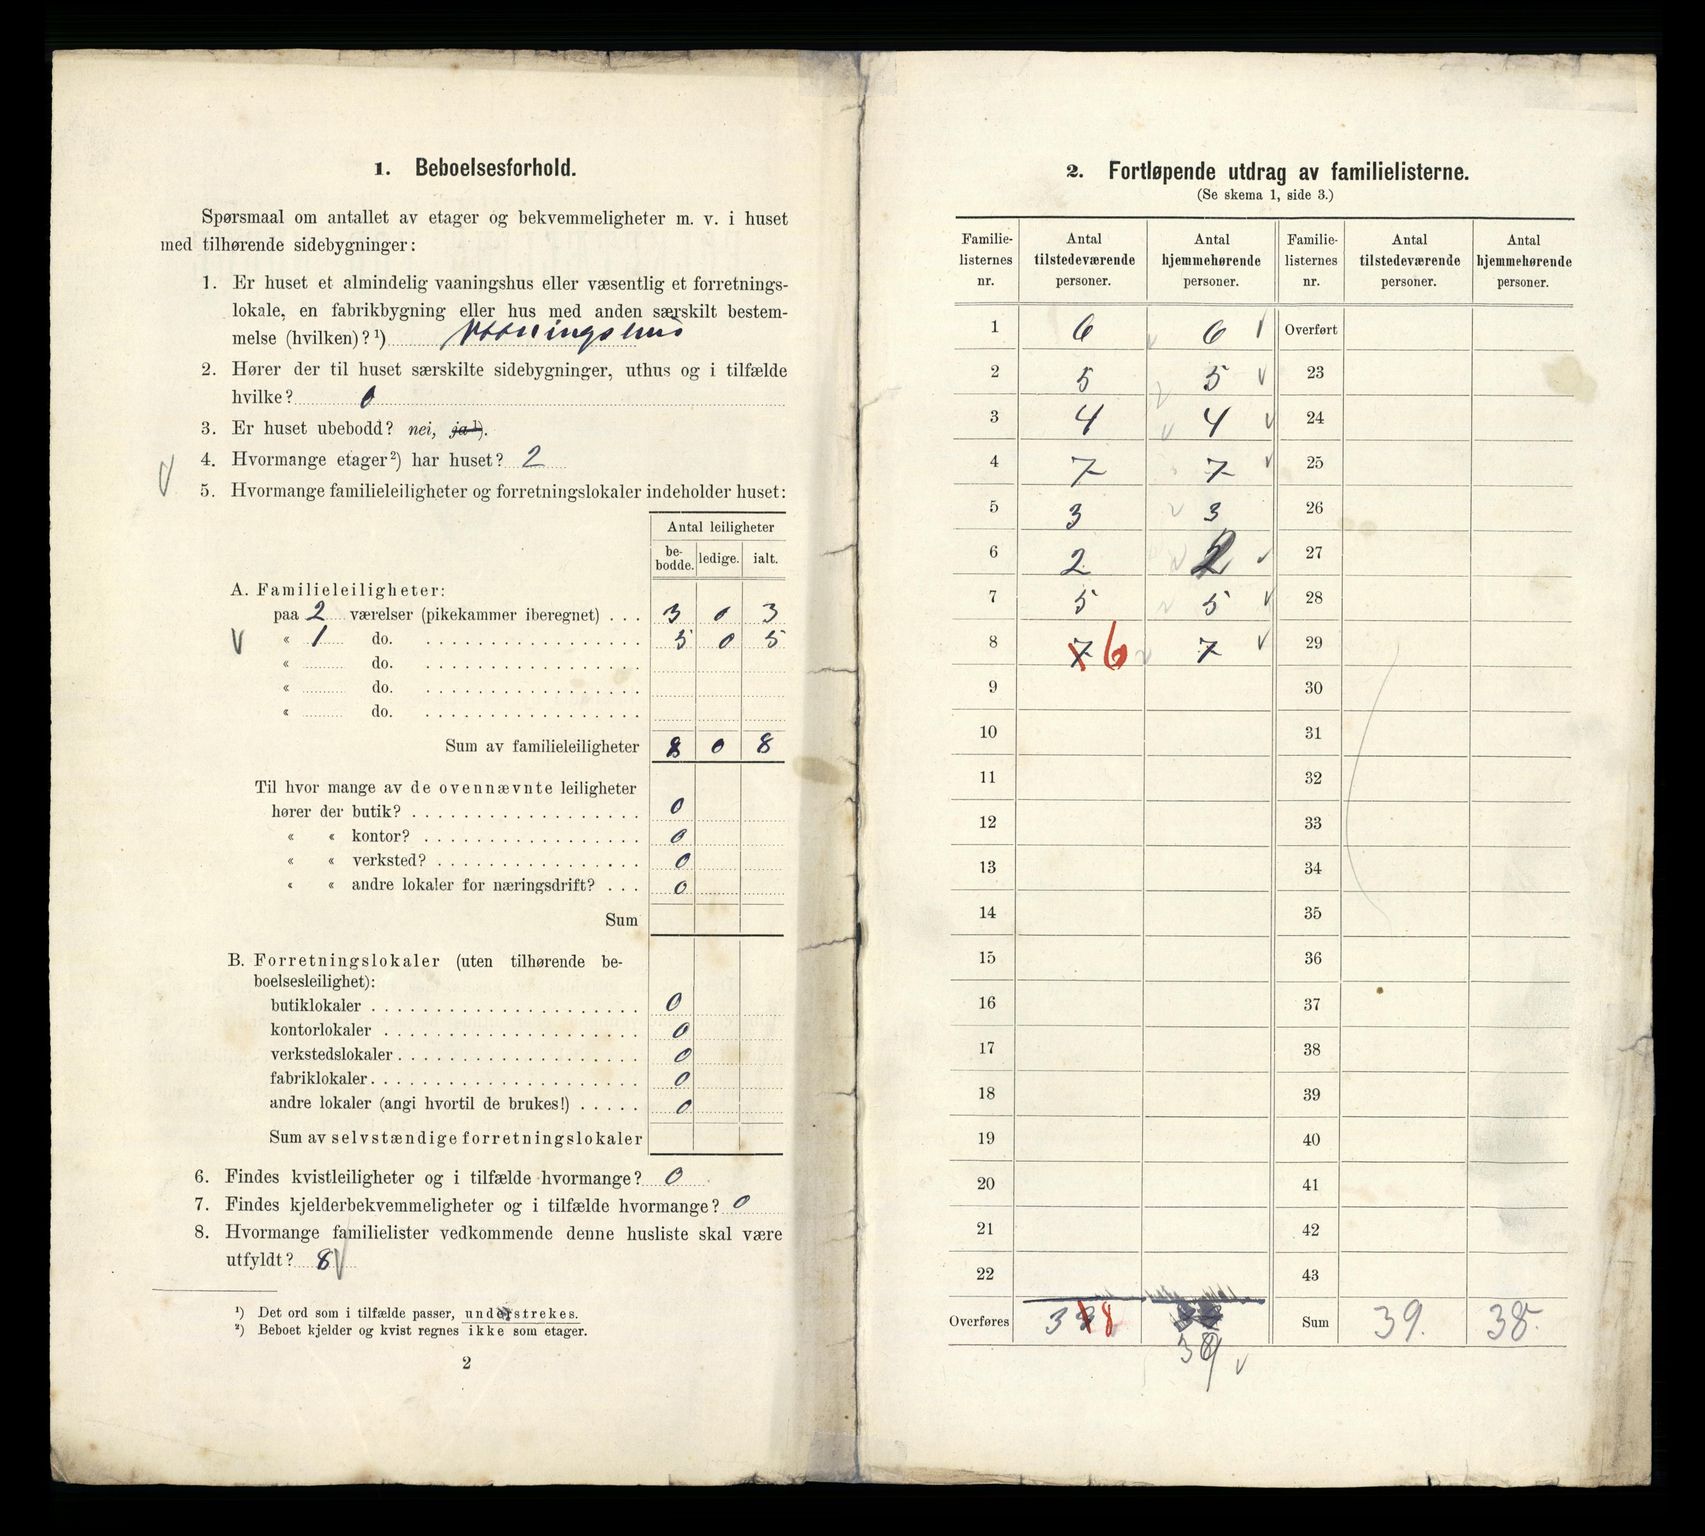 1. Beboelsesforhold.
Spørsmaal om antallet av etager og bekvemmeligheter m. v. i huset
med tilhørende sidebygninger:
1. Er huset et almindelig vaaningshus eller væsentlig et forretnings-
lokale, en fabrikbygning eller hus med anden særskilt bestem-
melse (hvilken)? ¹) Vaaningshus
2. Hører der til huset særskilte sidebygninger, uthus og i tilfælde
hvilke? 0
3. Er huset ubebodd? nei, ja ¹).
4. Hvormange etager ²) har huset? 2
5. Hvormange familieleiligheter og forretningslokaler indeholder huset:
Antal leiligheter
be-
bodde. ledige. ialt.
A. Familieleiligheter:
paa 2 værelser (pikekammer iberegnet) . . . 3 0 3
« 1 do. 5 0 5
« do.
« do.
« do.
Sum av familieleiligheter 8 0 8
Til hvor mange av de ovennævnte leiligheter
hører der butik? 0
« « kontor? 0
« « verksted? 0
« « andre lokaler for næringsdrift? . . . 0
Sum
B. Forretningslokaler (uten tilhørende be-
boelsesleilighet):
butiklokaler 0
kontorlokaler 0
verkstedslokaler 0
fabriklokaler 0
andre lokaler (angi hvortil de brukes!) . . . . . 0
Sum av selvstændige forretningslokaler
6. Findes kvistleiligheter og i tilfælde hvormange? 0
7. Findes kjelderbekvemmeligheter og i tilfælde hvormange? 0
8. Hvormange familielister vedkommende denne husliste skal være
utfyldt? 8
¹) Det ord som i tilfælde passer, understrekes.
²) Beboet kjelder og kvist regnes ikke som etager.
2
2. Fortløpende utdrag av familielisterne.
(Se skema 1, side 3.)
Familie- Antal Antal Familie- Antal Antal
listernes tilstedeværende hjemmehørende listernes tilstedeværende hjemmehørende
nr. personer. personer. nr. personer. personer.
1 6 6 Overført
2 5 5 23
3 4 4 24
4 7 7 25
5 3 3 26
6 2 2 27
7 5 5 28
8 7 6 7 29
9 30
10 31
11 32
12 33
13 34
14 35
15 36
16 37
17 38
18 39
19 40
20 41
21 42
22 43
Overføres 38 Sum 39. 38.
39